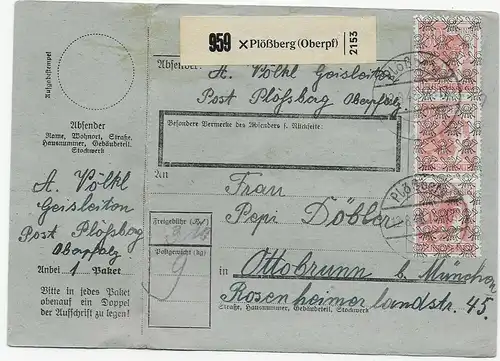 959 ×Plößberg (Oberpf)
2153
Aufgabestempel
Absender:
A. Völkl Geisleiten
Post Plößberg Oberpfalz
Besondere Vermerke des Absenders s. Rückseite:
Absender
Name, Wohnort, Straße,
Hausnummer, Gebäudeteil,
Stockwerk
A. Völkl
Geisleiten
Post Plößberg
Oberpfalz
Anbei 1 Paket
Bitte in jedes Paket
obenauf ein Doppel
der Aufschrift zu legen!
An
Frau
Pepi Döbler
Freigebühr
Postgewicht (kg)
9
in Ottobrunn b. München
Rosenheimerlandstr. 45.
Straße, Hausnummer, Gebäudeteil, Stockwerk
PLÖßBERG